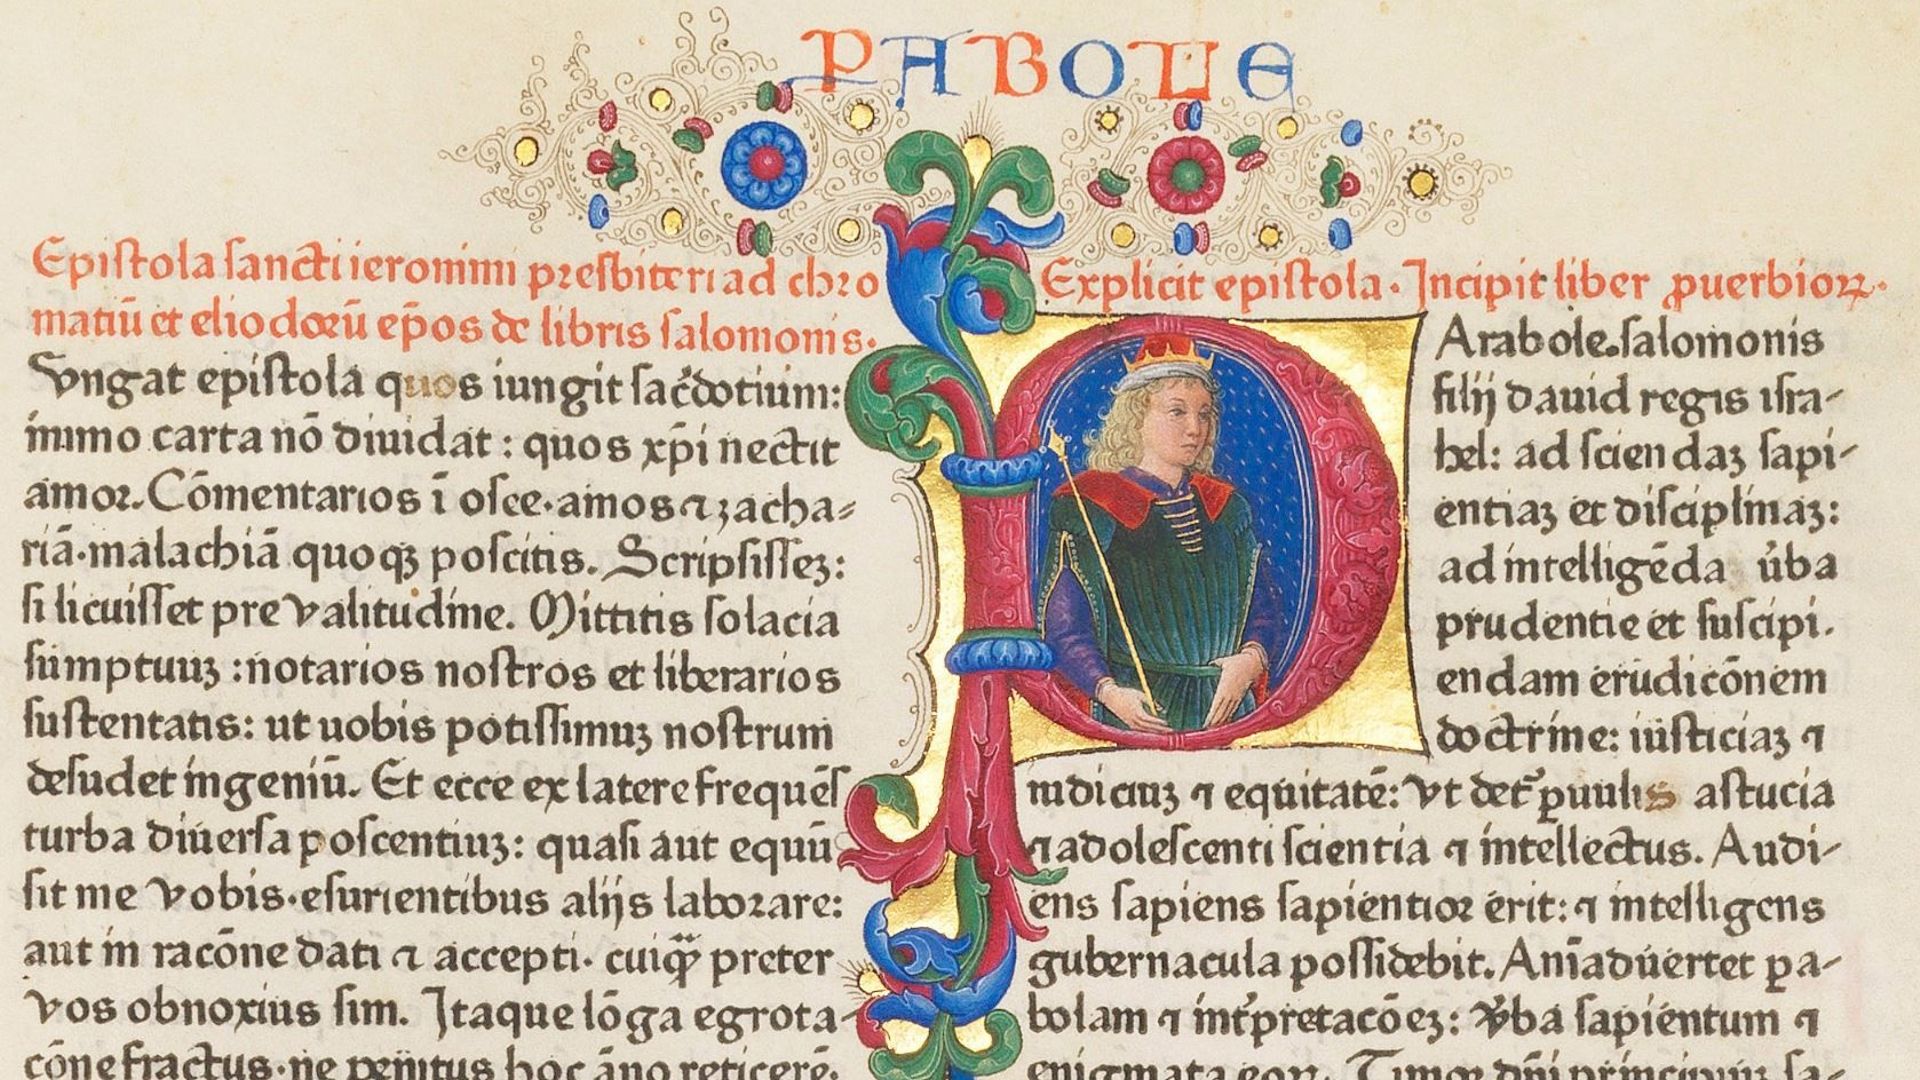 PABOLE
Epistola sancti ieronimi presbiteri ad chro
matiū et eliodorū ep̄os de libris salomonis.
Iungat epistola quos iungit sac̄dotium:
immo carta nō diuidat: quos xp̄i nectit
amor. Cōmentarios ī osee. amos ⁊ zacha-
riā. malachiā quoqꝫ poscitis. Scripsisseꝫ:
si licuisset pre valitudine. Mittitis solacia
sumptuuꝫ: notarios nostros et librarios
sustentatis: ut uobis potissimuꝫ nostrum
desudet ingeniū. Et ecce ex latere frequēs
turba diuersa poscentiuꝫ: quasi aut equū
sit me vobis. esurientibus alijs laborare:
aut in racōne dati ⁊ accepti. cuiqꝫ preter
vos obnoxius sim. Itaque lōga egrota-
cōne fractus. ne penitus hoc āno reticerē.
Explicit epistola. Incipit liber ꝓuerbioꝝ.
Arabole. salomonis
filij dauid regis isra-
hel: ad sciendaꝫ sapi-
entiaꝫ et disciplinaꝫ:
ad intelligēda ūba
prudentie et suscipi.
endam erudicōnem
doctrine: iusticiaꝫ ⁊
iudiciuꝫ ⁊ equitatē: vt det̄ ꝑuulis astucia
⁊ adolescenti scientia ⁊ intellectus. Audi-
ens sapiens sapientior erit: ⁊ intelligens
gubernacula possidebit. Anīaduertet ꝑa-
bolam ⁊ int̄pretacōeꝫ: v̄ba sapientum ⁊
enigmata eoꝝ. Timor dn̄i principiuꝫ sa-